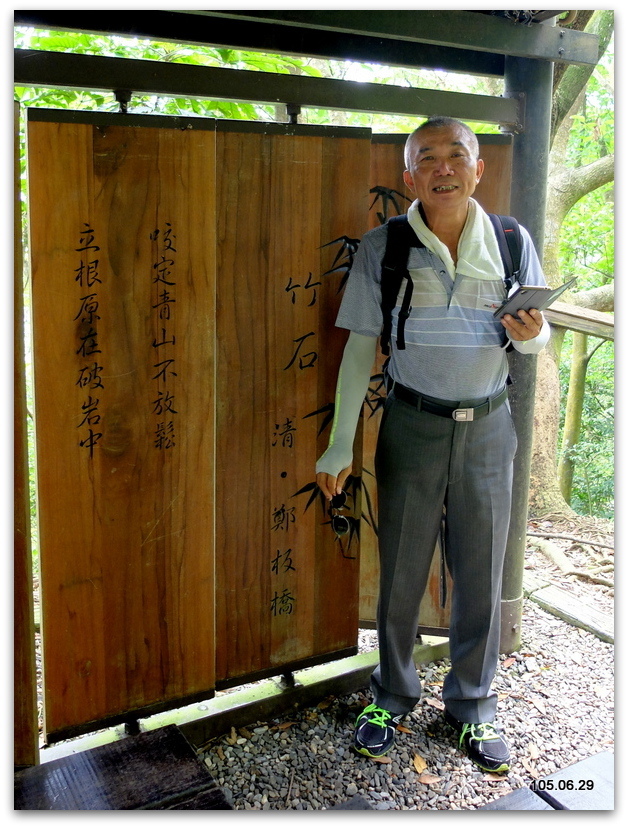 竹石
清・鄭板橋
咬定青山不放鬆
立根原在破岩中
105.06.29